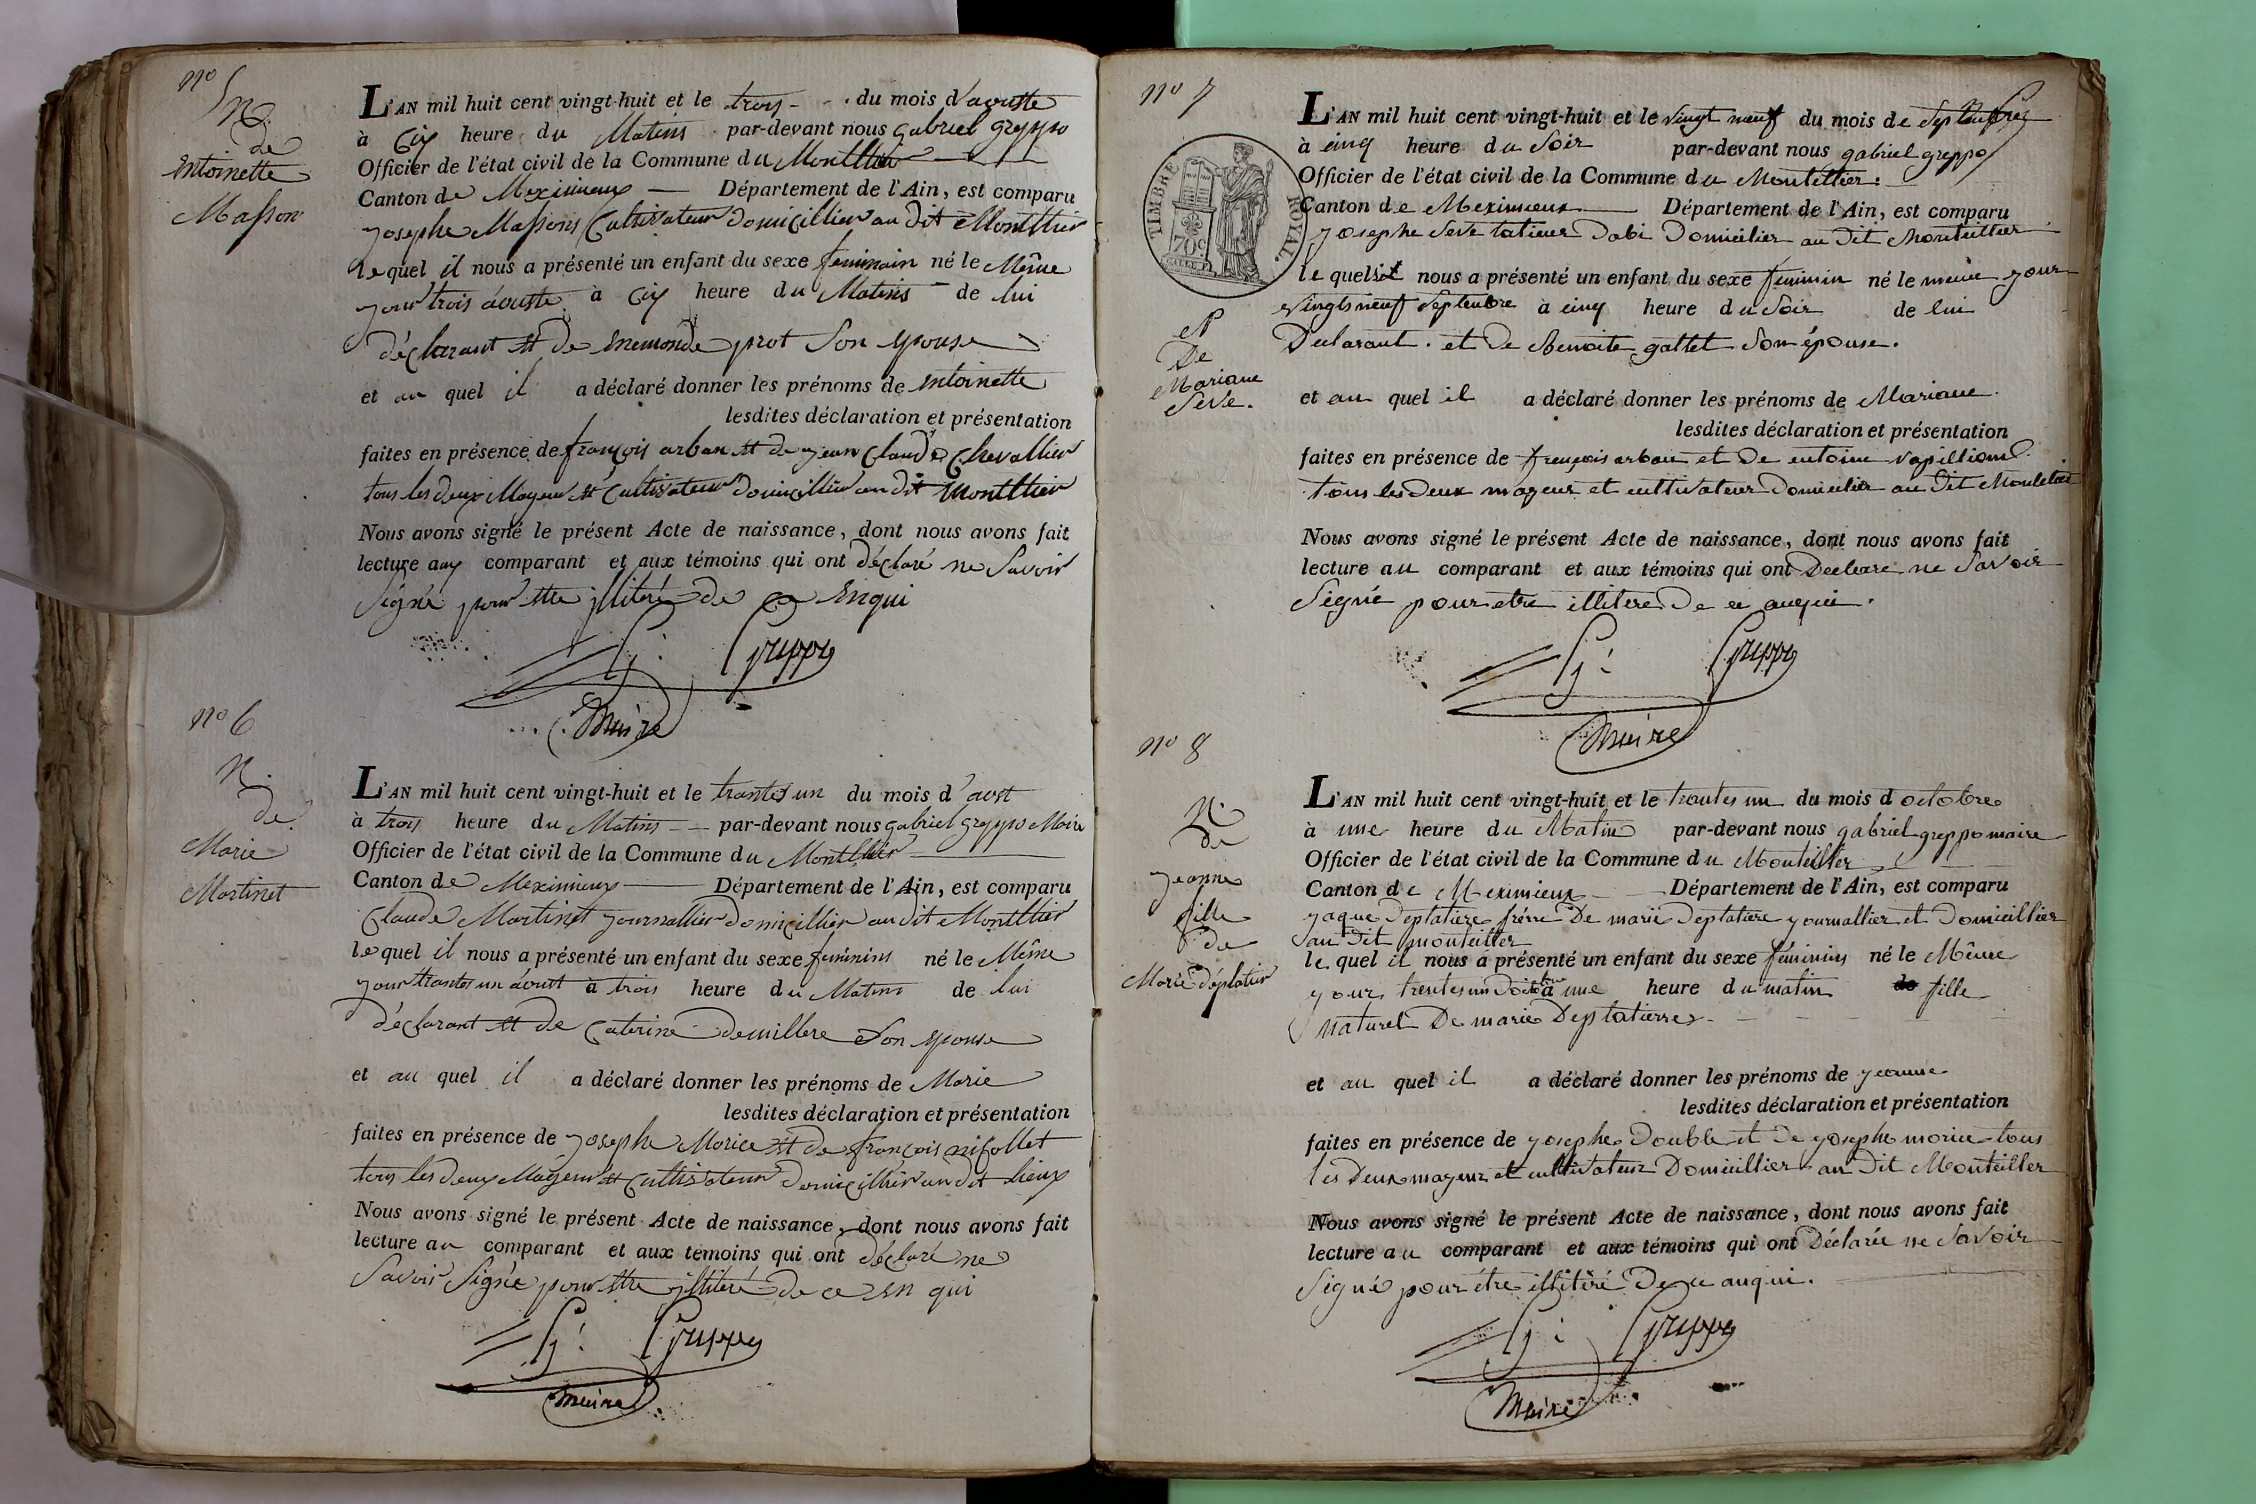 nº 5
N.
de
entoinette
Masson
L'AN mil huit cent vingt-huit et le trois - - . du mois d'aouste
à Cix heure du Matins par-devant nous gabriel greppo
Officier de l'état civil de la Commune du Montllier
Canton de Meximieux — Département de l'Ain, est comparu
josephe Massons Cultivateur domicillier au dit Montllier
lequel il nous a présenté un enfant du sexe feminain né le Même
jour trois áouste à Cix heure du Matins - de lui
déclarant et de enemonde prot Son epouse
et au quel il a déclaré donner les prénoms de entoinette
lesdites déclaration et présentation
faites en présence de françois arban et de jean Claude Chevallier
tous les deux Mayeur et Cultivateur domicillier au dit Montllier
Nous avons signé le présent Acte de naissance, dont nous avons fait
lecture aux comparant et aux témoins qui ont déclaré ne Savoir
Signé pour etre illiteré de ce enqui
G: Greppo
Maire
nº 6
N.
de
Marie
Martinet
L'AN mil huit cent vingt-huit et le trantes un du mois d'aust
à trois heure du Matins - - par-devant nous gabriel greppo Maire
Officier de l'état civil de la Commune du Montllier
Canton de Meximieux — Département de l'Ain, est comparu
Claude Martinet journallier domicillier au dit Montllier
lequel il nous a présenté un enfant du sexe feminins né le Même
jour trantes un áoust à trois heure du Matins de lui
déclarant et de Caterine demillere Son epouse
et au quel il a déclaré donner les prénoms de Marie
lesdites déclaration et présentation
faites en présence de josephe Morice et de françois nifollet
tous les deux Mágeur et Cultivateur domicillier au dit lieux
Nous avons signé le présent Acte de naissance, dont nous avons fait
lecture au comparant et aux témoins qui ont déclaré ne
Savoir Signée pour etre illiteré de ce en qui
G: Greppo
Maire
nº 7
TIMBRE ROYAL.
70c
N
De
Mariane
Seve.
L'AN mil huit cent vingt-huit et le vingt neuf du mois de Septembre
à cinq heure du Soir par-devant nous gabriel greppo
Officier de l'état civil de la Commune du Monteillier.
Canton de Meximieux — Département de l'Ain, est comparu
josephe Seve talieur dabi domicilier au dit Monteillier
le quel il nous a présenté un enfant du sexe féminin né le meme jour
vingts neuf Septembre à cinq heure du Soir de lui
Declarant . et de Benoite gallet Son épouse.
et au quel il a déclaré donner les prénoms de Mariane
lesdites déclaration et présentation
faites en présence de françois arban et de entoine vapillions
tous les deux mageur et cultivateur domicilier au dit Monteilier
Nous avons signé le présent Acte de naissance, dont nous avons fait
lecture au comparant et aux témoins qui ont Declare ne Savoir
Signé pour etre illitere De ce auqui.
G: Greppo
Maire
nº 8
N.
de
jeanne
fille
de
Marie déplatier
L'AN mil huit cent vingt-huit et le trentes un du mois d octobre
à une heure du Matin par-devant nous gabriel greppo maire
Officier de l'état civil de la Commune du Monteiller
Canton de Meximieux — Département de l'Ain, est comparu
jaque Deplatiere frérre De marie Deplatiere journallier et domicillier
au dit monteiller
le quel il nous a présenté un enfant du sexe féminins né le Même
jour trentes un doctobre à une heure du matin fille
naturel De marie Deplatierre - - - -
et au quel il a déclaré donner les prénoms de jeanne
lesdites déclaration et présentation
faites en présence de josephe Double et de josephe morice tous
les Deux mageur et cultivateur Domicillier au dit Monteiller
Nous avons signé le présent Acte de naissance, dont nous avons fait
lecture au comparant et aux témoins qui ont Déclarée ne Savoir
Signé pour étre illitéré De ce auqui.
G: Greppo
Maire